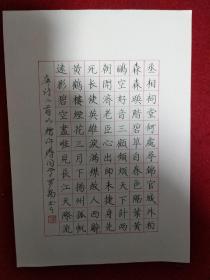 丞相祠堂何處尋錦官城外柏
森森映階碧草自春色隔葉黃
鸝空好音三顧頻煩天下計兩
朝開濟老臣心出師未捷身先
死長使英雄淚滿襟故人西辭
黃鶴樓煙花三月下揚州孤帆
遠影碧空盡唯見長江天際流
唐詩二首